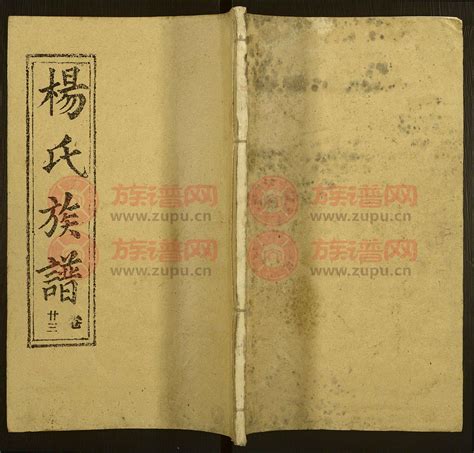 楊氏族譜
卷
廿三
族谱网
www.zupu.cn
族谱网
www.zupu.cn
族谱网
www.zupu.cn
族谱网
www.zupu.cn